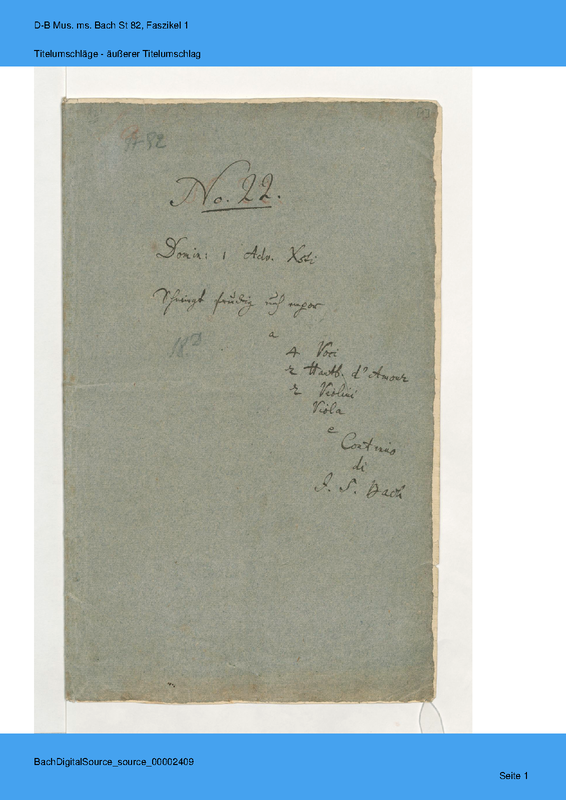 D-B Mus. ms. Bach St 82, Faszikel 1
Titelumschläge - äußerer Titelumschlag
No. 22.
Domin: 1 Adv. Xsti
Schwingt freudig euch empor
a
4 Voci
2 Hautb. d'Amour
2 Violini
Viola
e
Continuo
di
J. S. Bach
BachDigitalSource_source_00002409
Seite 1